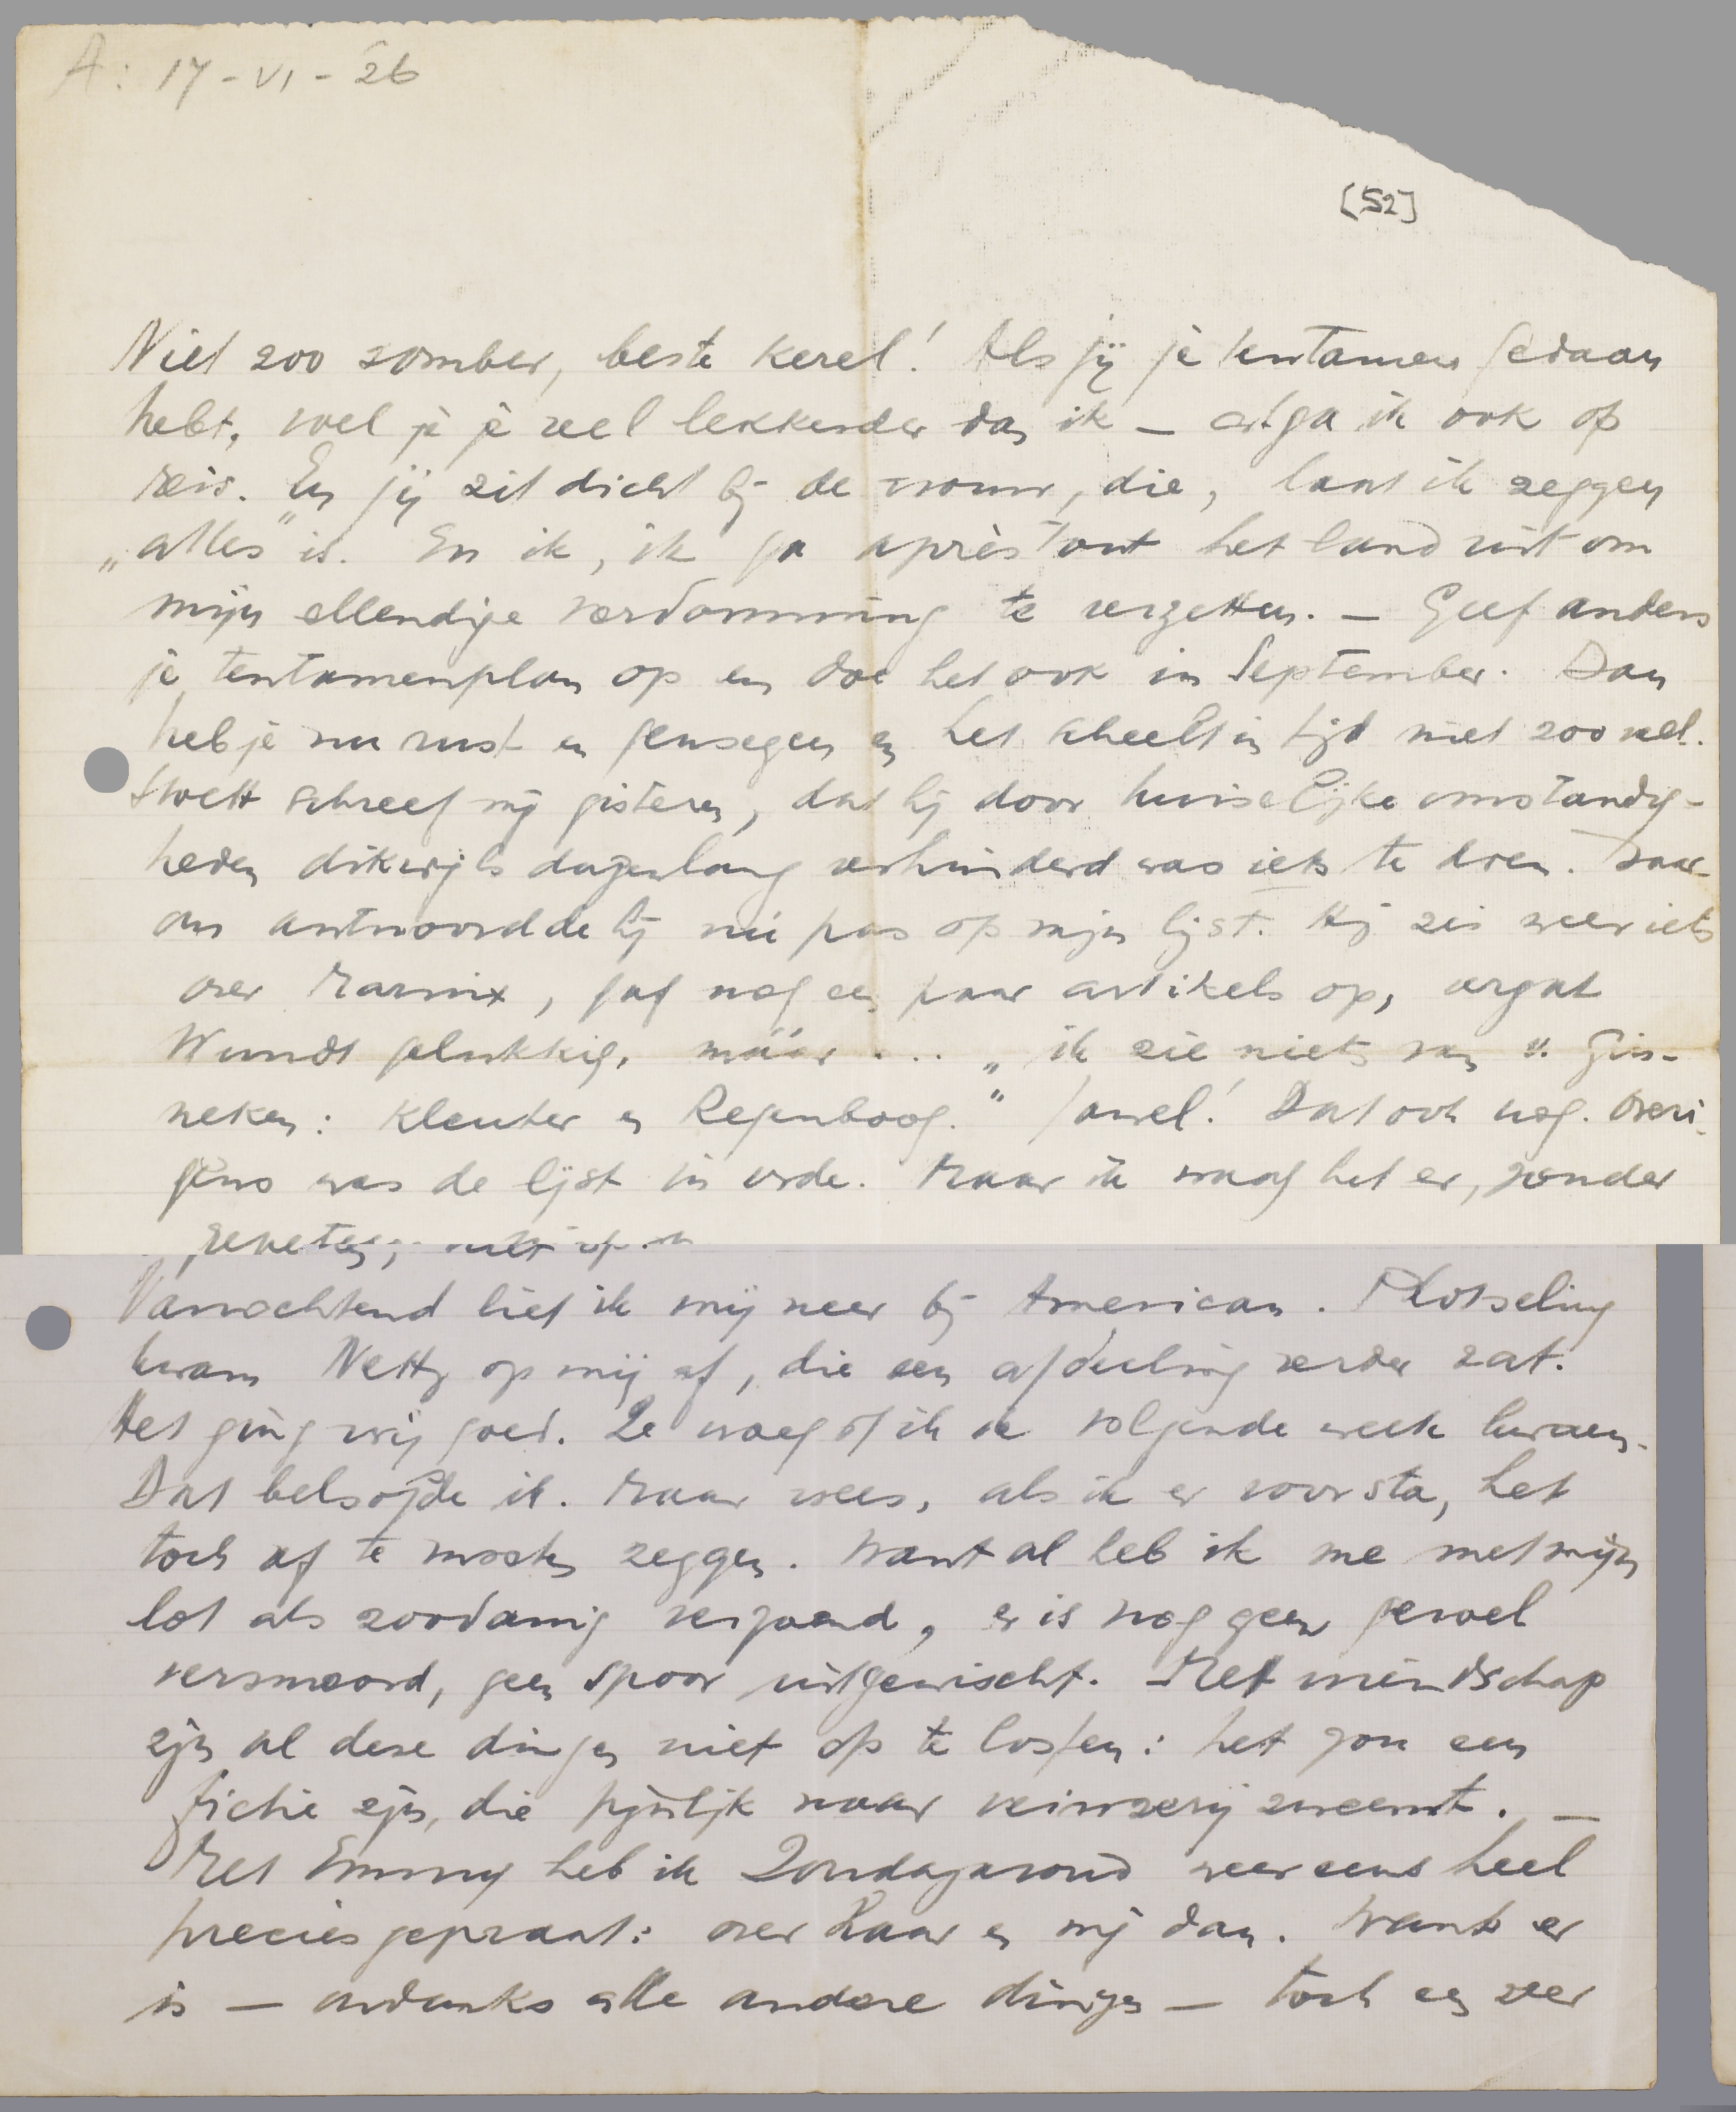 A: 17-VI-26
[52]
Niet zoo somber, beste kerel! Als jij je tentamen gedaan
hebt, voel je je veel lekkerder dan ik — al ga ik ook op
reis. En jij zit dicht bij de vrouw, die, laat ik zeggen
„alles" is. En ik, ik ga après tout het land uit om
mijn ellendige verdomming te verzetten. — Geef anders
je tentamenplan op en doe het ook in September. Dan
heb je nu rust en genoegen en het scheelt in tijd niet zoo veel.
Stoett schreef mij gisteren, dat hij door huiselijke omstandig-
heden dikwijls dagenlang verhinderd was iets te doen. Daar-
om antwoordde hij nú pas op mijn lijst. Hij zei weer iets
over Marnix, gaf nog een paar artikels op, vergat
Wundt gelukkig, máár ... „ik zie niets van v. Gin-
neken: Kleuter en Regenboog." Jawel! Dat ook nog. Overi-
gens was de lijst in orde. Maar ik waag het er, zonder
niet op
Vanochtend liet ik mij neer bij American. Plotseling
kwam Netty op mij af, die een afdeeling verder zat.
Het ging vrij goed. Ze vroeg of ik de volgende week kwam.
Dat beloofde ik. Maar vrees, als ik er voor sta, het
toch af te moeten zeggen. Want al heb ik me met mijn
lot als zoodanig verzoend, er is nog geen gevoel
vermoord, geen spoor uitgewischt. Met vriendschap
zijn al deze dingen niet op te lossen: het zou een
fictie zijn, die pijnlijk naar veinzerij zweemt. —
Met Emmy heb ik Zondagavond weer eens heel
precies gepraat: over Haar en mij dan. Want er
is — ondanks alle andere dingen — toch een zeer